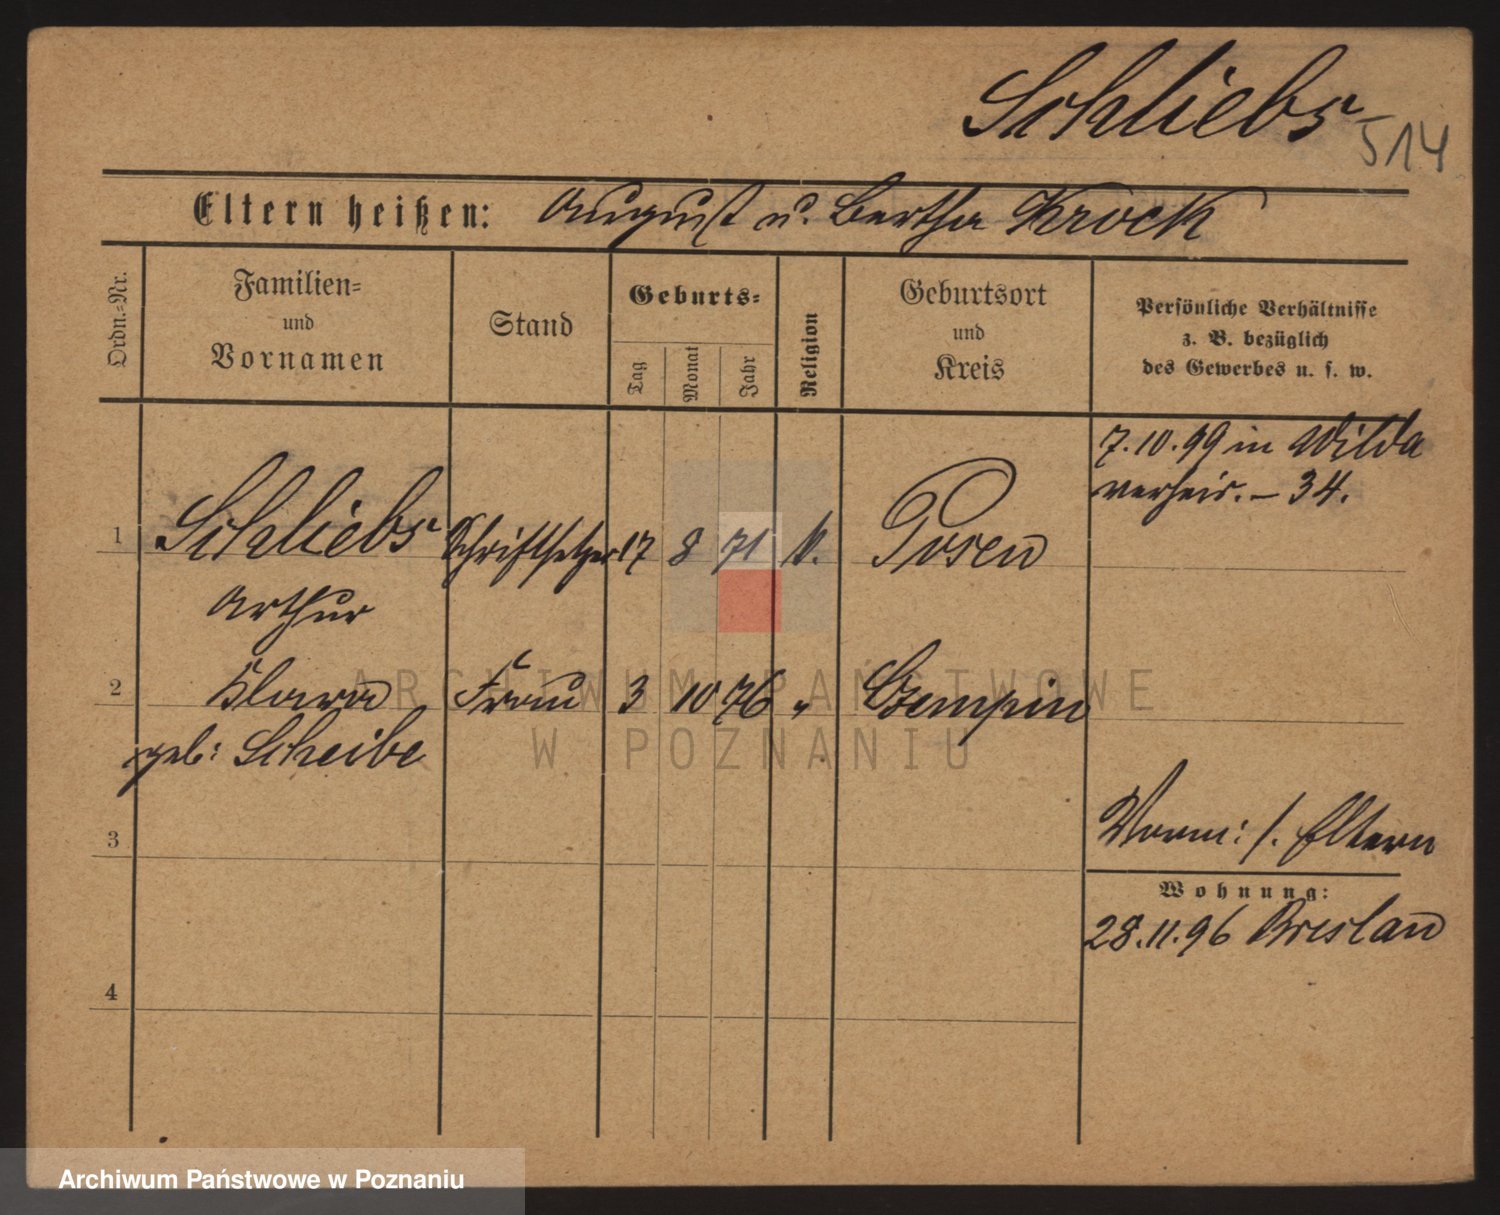 Schliebs
514
Eltern heißen: August u. Bertha Krock
Ordn.-Nr.
Familien-
und
Vornamen
Stand
Geburts-
Tag
Monat
Jahr
Religion
Geburtsort
und
Kreis
Persönliche Verhältnisse
z. B. bezüglich
des Gewerbes u. s. w.
7.10.99 in Wilda
verheir. – 34.
1 Schliebs Schriftsetzer 17 8 71 k. Posen
Arthur
2 Klara Frau 3 10 76 " Czempin
geb: Scheibe
ARCHIWUM PAŃSTWOWE
W POZNANIU
3
Vorm: /. Eltern
Wohnung:
28.11.96 Breslau
4
Archiwum Państwowe w Poznaniu